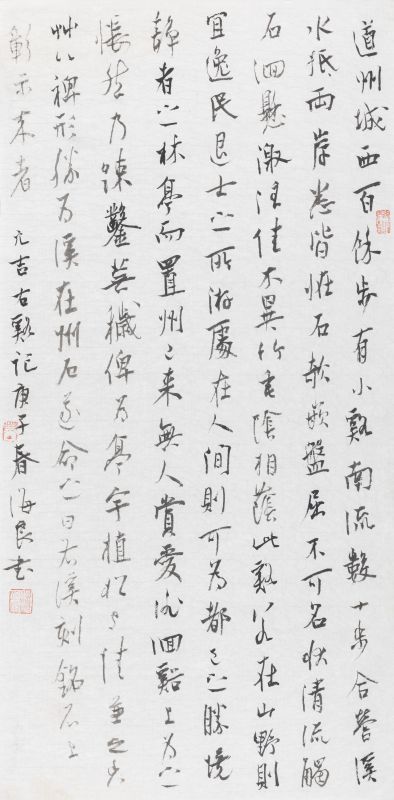 道州城西百餘步有小谿南流數十步合營溪
水抵兩岸悉皆怪石欹嵌盤屈不可名狀清流觸
石洄懸激注佳木異竹垂陰相蔭此谿若在山野則
宜逸民退士之所游處在人間則可為都邑之勝境
靜者之林亭而置州以来無人賞愛徘徊谿上为之
悵然乃疎鑿蕪穢俾为亭宇植松與桂兼之香
草以裨形勝为溪在州右遂命之曰右溪刻銘石上
彰示来者 元吉右谿记庚子春海良书